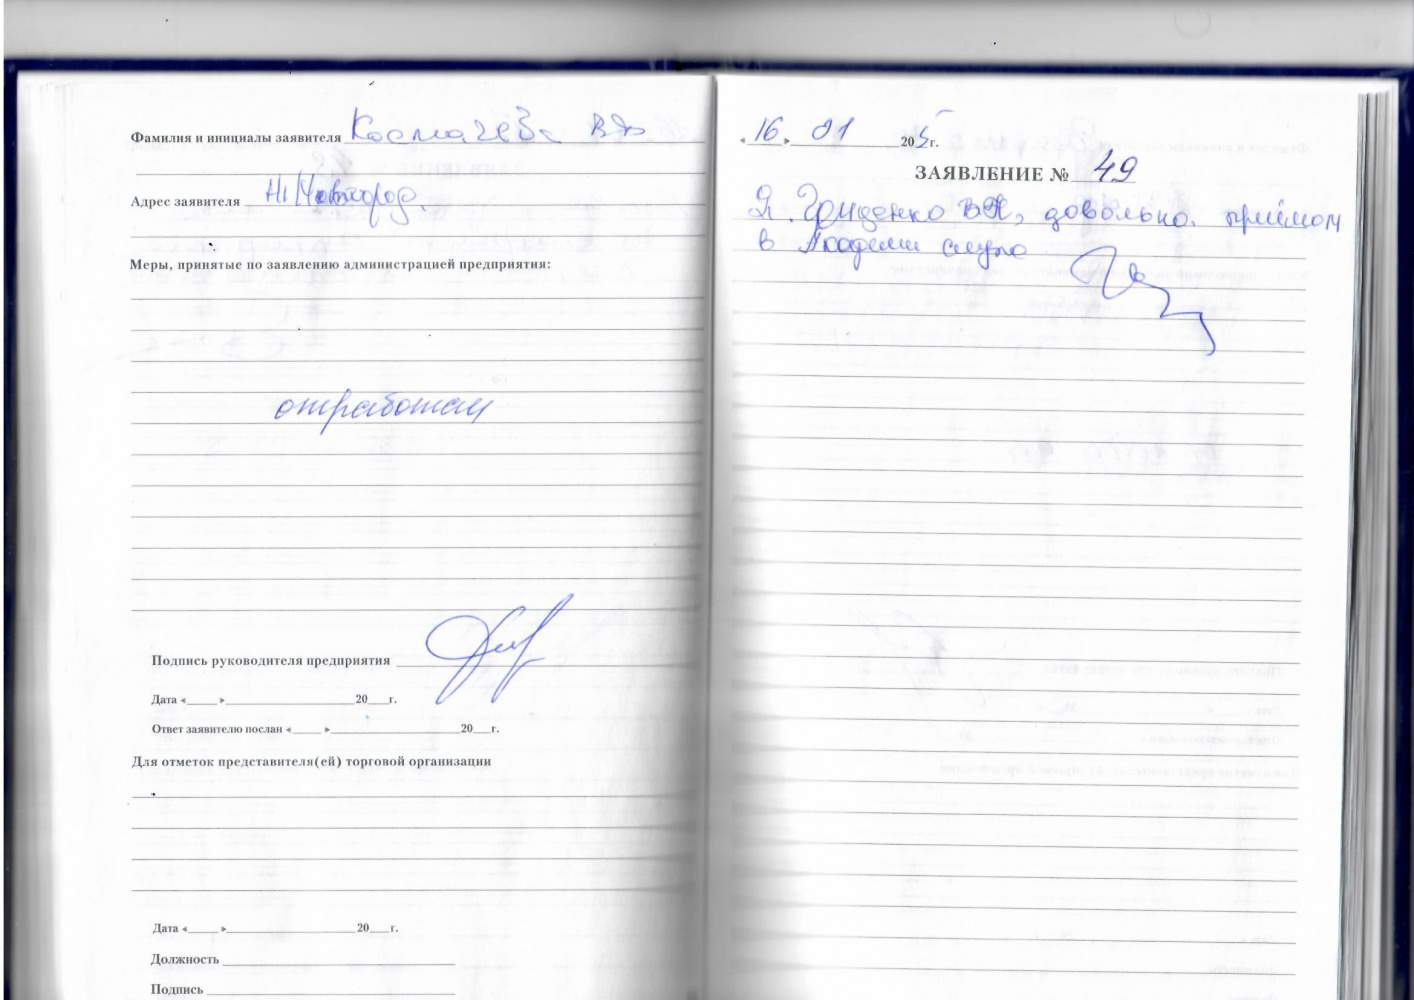 Фамилия и инициалы заявителя Космачева
Адрес заявителя Н. Новгород.
Меры, принятые по заявлению администрацией предприятия:
отработан
Подпись руководителя предприятия
Дата «____» ____ 20__г.
Ответ заявителю послан «____» ____ 20__г.
Для отметок представителя(ей) торговой организации
Дата «____» ____ 20__г.
Должность
Подпись
«16» 01 205г.
ЗАЯВЛЕНИЕ № 49
Я. Гриденко ВН, довольна. приёмом
в Академии слуха